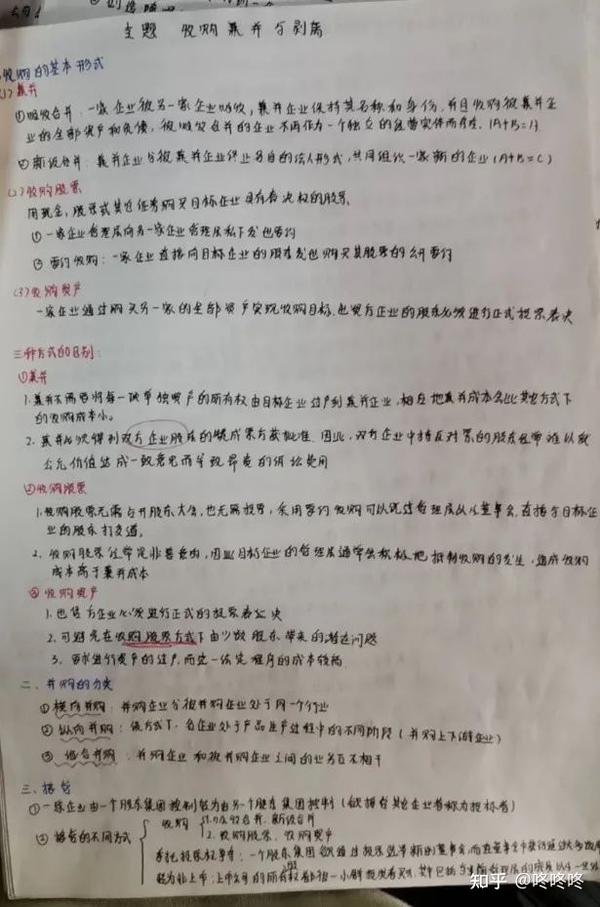 主题 收购兼并与剥离
收购的基本形式
(1)兼并
①吸收合并：一家企业被另一家企业吸收，兼并企业保持其名称和身份，并且收购被兼并企
业的全部资产和负债，被吸收合并的企业不再作为一个独立的经营实体而存在。(A+B=A)
②新设合并：兼并企业与被兼并企业终止各自的法人形式，共同组成一家新的企业(A+B=C)
(2)收购股票
用现金、股票或其他证券购买目标企业具有表决权的股票。
①一家企业管理层向另一家企业管理层私下发出要约
②要约收购：一家企业直接向目标企业的股东发出购买其股票的公开要约
(3)收购资产
一家企业通过购买另一家的全部资产实现收购目标，出售方企业的股东必须进行正式投票表决
三种方式的区别：
①兼并
1.兼并不需要将每一项单独资产的所有权由目标企业过户到兼并企业，相应地兼并成本会比其它方式下
的收购成本小。
2.兼并必须得到双方企业股东的赞成票方获批准。因此，双方企业中持反对票的股东经常难以就
公允价值达成一致意见而导致昂贵的诉讼费用
②收购股票
1.收购股票无需召开股东大会，也无需投票，采用要约收购可以绕过管理层以及董事会，直接与目标企
业的股东打交道。
2.收购股票经常是非善意的，因此目标企业的管理层通常会积极地抵制收购的发生，造成收购
成本高于兼并成本
③收购资产
1.出售方企业必须进行正式的投票表决
2.可避免在收购股票方式下由少数股东带来的潜在问题
3.要求进行资产的过户，而这一法定程序的成本较高
二、并购的分类
①横向并购：并购企业与被并购企业处于同一个行业
②纵向并购：该方式下，各企业处于产品生产过程中的不同阶段（并购上下游企业）
③混合并购：并购企业和被并购企业之间的业务互不相干
三、接管
①一家企业由一个股东集团控制转为由另一个股东集团控制（欲接管其它企业者称为投标者）
②接管的不同方式
收购 1.吸收合并、新设合并
2.收购股票、收购资产
委托投票权争夺：一个股东集团欲通过投票选举新的董事会，而在董事会中获得
转为非上市：上市公司的所有股权都被一小群投资者买
知乎 @咚咚咚